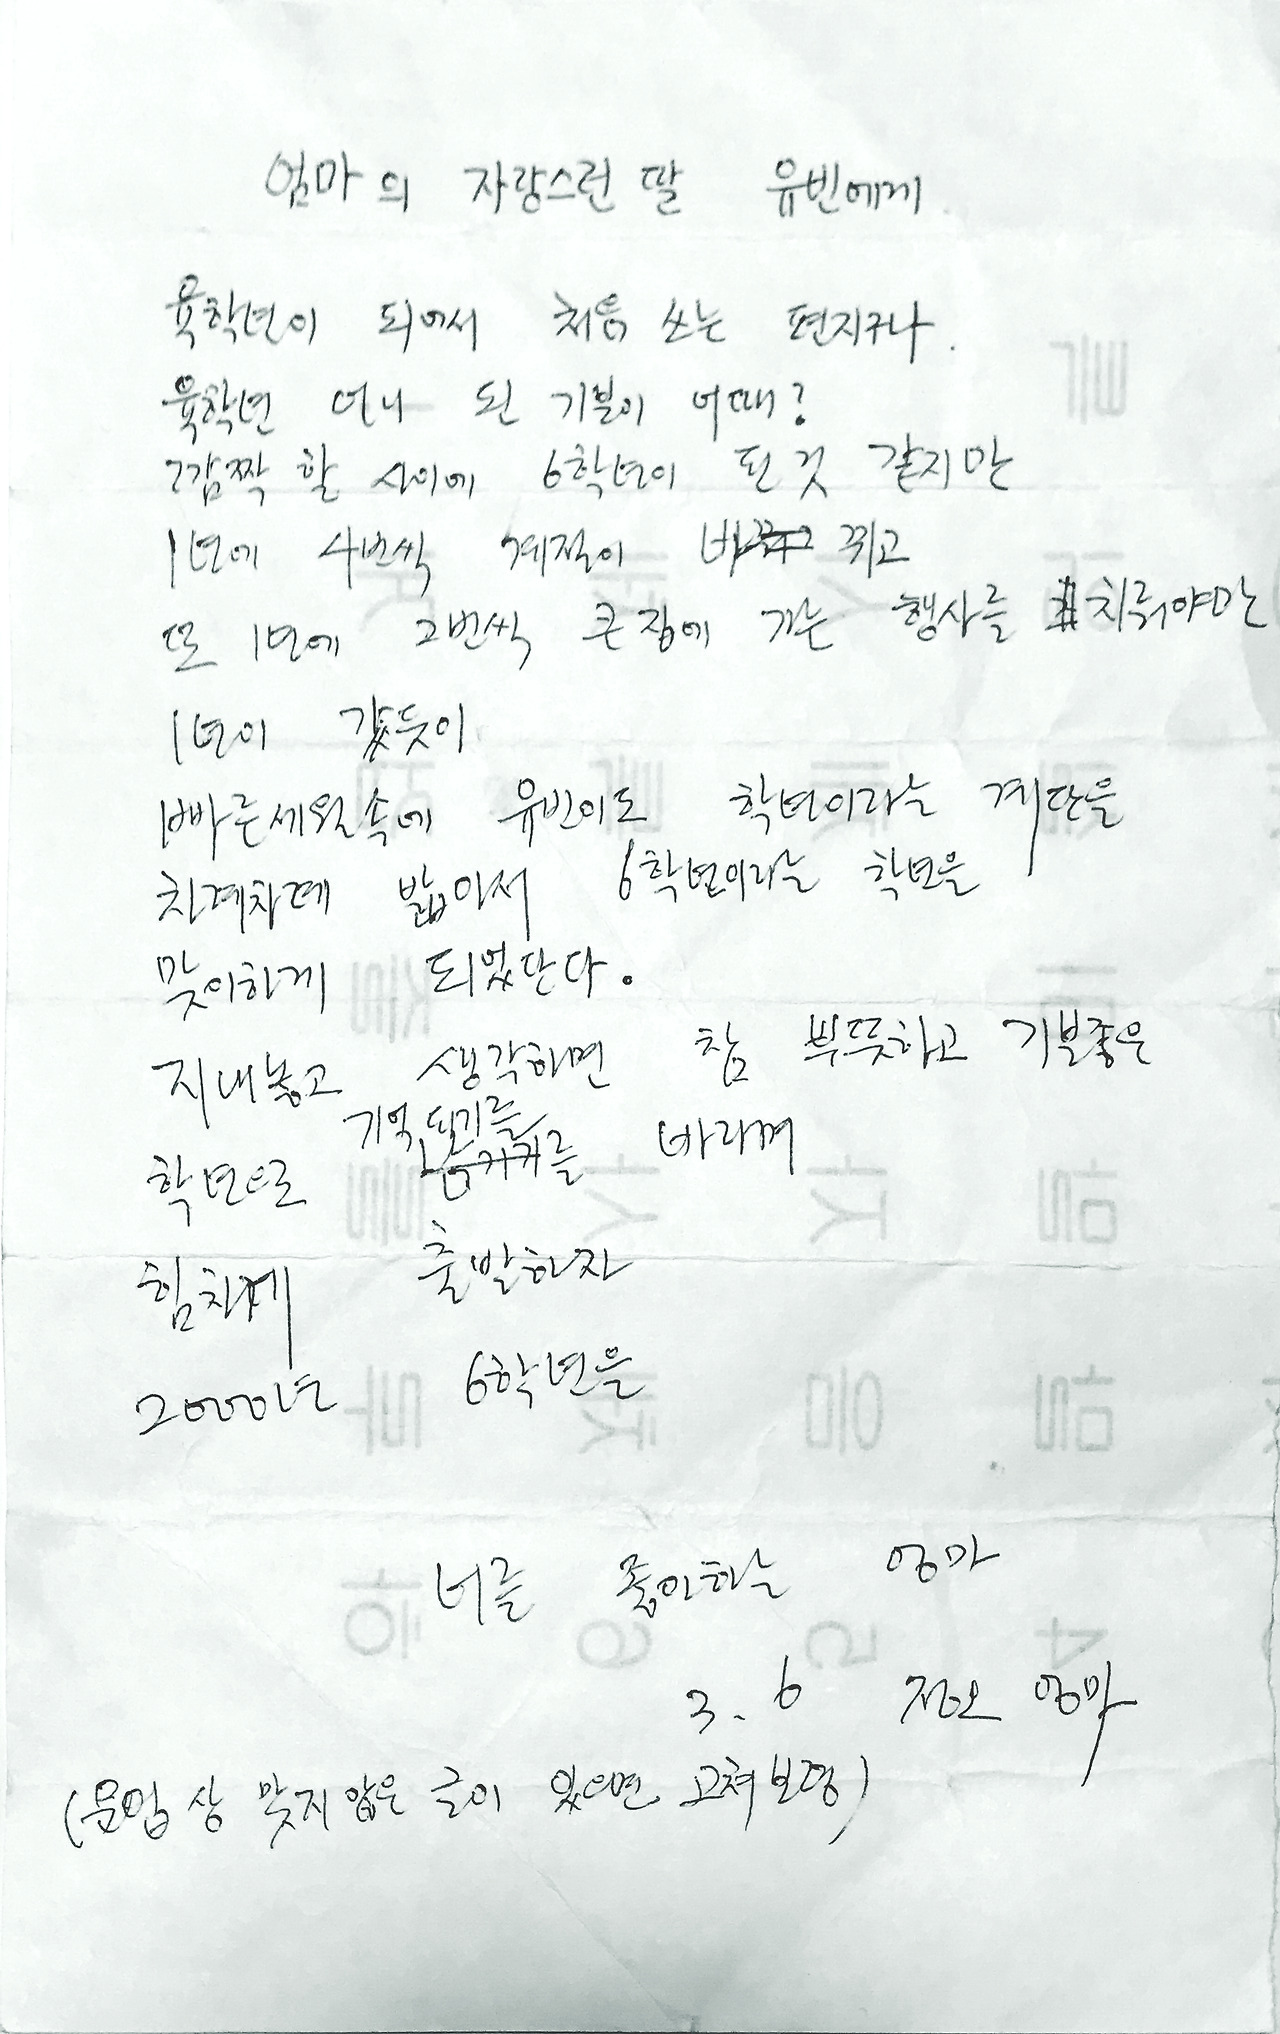 엄마의 자랑스런 딸 유빈에게
육학년이 되어서 처음 쓰는 편지구나.
육학년 언니 된 기분이 어때?
깜짝 할 사이에 6학년이 된 것 같지만
1년에 4번씩 계절이 바뀌고
또 1년에 2번씩 큰집에 가는 행사를 치뤄야만
1년이 갔듯이
빠른세월속에 유빈이도 학년이라는 계단을
차례차례 밟아서 6학년이라는 학년을
맞이하게 되었단다.
지내놓고 생각하면 참 뿌뜻하고 기분좋은
학년으로 기억되기를 바라며
힘차게 출발하자
2000년 6학년을
너를 좋아하는 엄마
3. 6 정오 엄마
(문법상 맞지않은 글이 있으면 고쳐보렴)